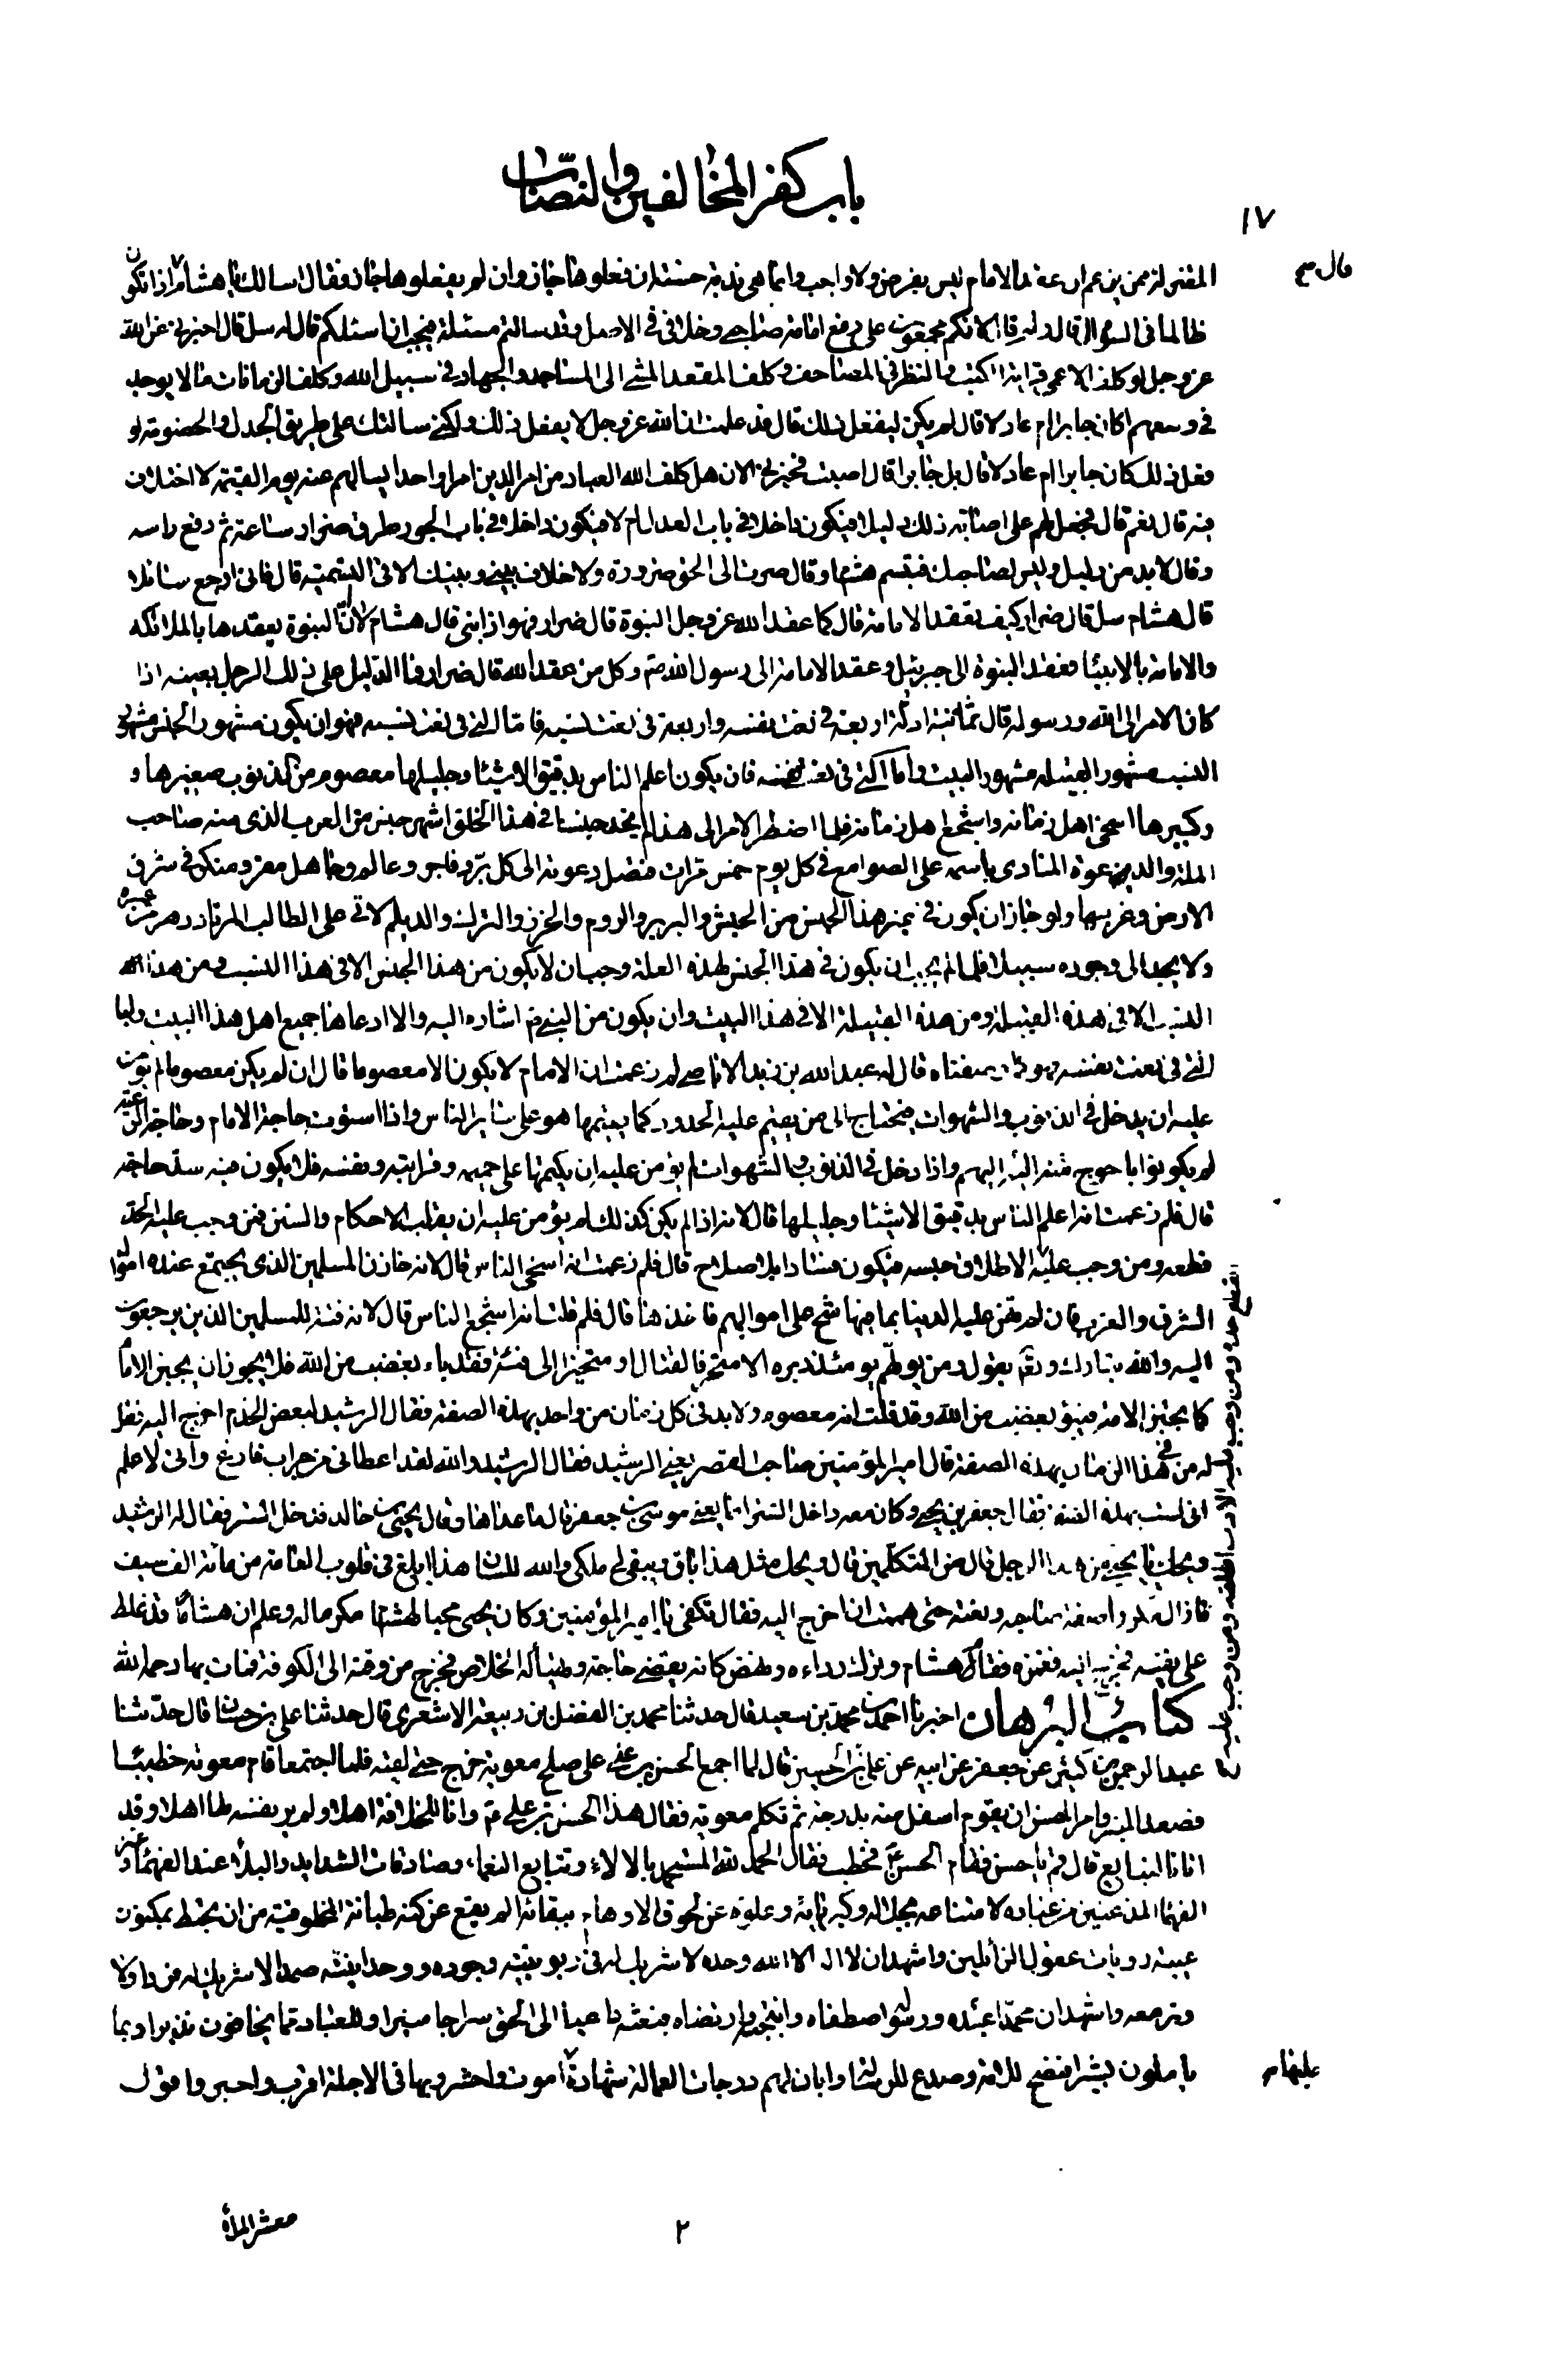 باب كفر المخالفين والنصّاب
١٧
قال م
المعتزلة ممن يزعم ان عقد الامام ليس بفرض ولا واجب وانما هي ندبة حسنة ان فعلوها جاز وان لم يفعلوها جاز فقال اسالك يا هشام اذا تكون
ظالما في السؤال قال ولم قال لانكم مجمعون على دفع امامة صاحبي وخلافي في الاصل وقد سالتم مسئلة فيجب ان اسئلكم قال له سل قال اخبرني عن الله
عز وجل لو كلف الاعمى قراءة الكتب والنظر في المصاحف وكلف المقعد المشي الى المساجد والجهاد في سبيل الله وكلف الزمانات ما لا يوجد
في وسعهم اكان جابرا ام عادلا قال لم يكن ليفعل ذلك قال قد علمت ان الله عز وجل لا يفعل ذلك ولكني سالتك على طريق الجدل والخصومة لو
فعل ذلك كان جابرا ام عادلا قال بل جابرا قال اصبت فخبرني الان هل كلف الله العباد من امر الدين امرا واحدا يسالهم عنه يوم القيمة لا اختلاف
فيه قال نعم قال فجعل لهم على اصابة ذلك دليلا فيكون داخلا في باب العدل ام لا فيكون داخلا في باب الجور فطرق ضرار ساعة ثم رفع راسه
وقال لا بد من دليل وليس لصاحبك فتبسم هشام وقال صرت الى الحق ضرورة ولا خلاف بيني وبينك الا في التسمية قال فاني ارجع سائلا
قال هشام سل قال ضرار كيف تعقد الامامة قال كما عقد الله عز وجل النبوة قال ضرار فهو اذا نبي قال هشام لا لانّ النبوة يعقدها بالملائكة
والامامة بالانبيا فعقد النبوة الى جبرئيل وعقد الامامة الى رسول الله ص وكل من عقد الله قال ضرار فما الدليل على ذلك الرجل بعينه اذا
كان الامر الى الله ورسوله قال ثمانية ادلة اربعة في نعت نفسه واربعة في نعت نسبه فامّا التي في نعت نسبه فهو ان يكون مشهور الجنس مشهور
النسب مشهور القبيلة مشهور البيت واما التي في نعت نفسه فان يكون اعلم الناس بدقيق الاشيا وجليلها معصوم من الذنوب صغيرها و
وكبيرها اسخى اهل زمانه واشجع اهل زمانه فلما اضطر الامر الى هذا لم يجد جنسا في هذا الخلق اشهر جنس من العرب الذي منه صاحب
الملة والدين دعوة المنادي باسمه على الصوامع في كل يوم خمس مرات فتصل دعوته الى كل برّ وفاجر وعالم وجاهل مقر ومنكر في شرق
الارض وغربها ولو جاز ان يكون في غير هذا الجنس من الحبش والبربر والروم والخزر والترك والديلم لاتى على الطالب المرتاد دهر من عمره
ولا يجد الى وجوده سبيلا فلما لم يجب ان يكون في هذا الجنس لهذه العلة وجب ان لا يكون من هذا الجنس الا في هذا النسب ومن هذا
النسب الا في هذه القبيلة ومن هذه القبيلة الا في هذا البيت وان يكون من النبي ص اشارة اليه والا ادعاها جميع اهل هذا البيت واما
التي في نعت نفسه فهو كما وصفناه قال له عبد الله بن زيد الاباضي لم زعمت ان الامام لا يكون الا معصوما قال ان لم يكن معصوما لم يؤمن
عليه ان يدخل في الذنوب والشهوات فيحتاج الى من يقيم عليه الحدود كما يقيمها هو على سائر الناس واذا استوت حاجة الامام وحاجة الرعية
لم يكونوا باحوج منه اليه اليهم واذا دخل في الذنوب والشهوات لم يؤمن عليه ان يكتمها على حميمه وقرابته ونفسه فلا يكون فيه سد حاجة
قال فلم زعمت انه اعلم الناس بدقيق الاشيا وجليلها قال لانه اذا لم يكن كذلك لم يؤمن عليه ان يقلب الاحكام والسنن فمن وجب عليه الحدّ
قطعه ومن وجب عليه الاطلاق حبسه فيكون فسادا بلا صلاح قال فلم زعمت انه اسخى الناس قال لانه خازن المسلمين الذي يجتمع عنده اموال
الشرق والغرب فان لم تهن عليه الدنيا بما فيها شح على اموالهم فاخذها قال فلم قلت انه اشجع الناس قال لانه فئة للمسلمين الذين يرجعون
اليه والله تبارك وتعالى يقول ومن يولّهم يومئذ دبره الا متحرفا لقتال او متحيزا الى فئة فقد باء بغضب من الله فلا يجوز ان يجبن الامام
كما يجبن الامة فيبؤ بغضب من الله وقد قلت انه معصوم ولا بد في كل زمان من واحد بهذه الصفة فقال الرشيد لبعض الخدم اخرج اليه فقل
له من في هذا الزمان بهذه الصفة قال امير المؤمنين صاحب القصر يعني الرشيد فقال الرشيد والله لقد اعطاني من جراب فارغ واني لاعلم
اني لست بهذه الصفة فقال جعفر بن يحيى وكان معه داخل الستر انما يعني موسى بن جعفر قال ما عداها وقال يحيى بن خالد فدخل الستر فقال له الرشيد
ويحك يا يحيى من هذا الرجل قال من المتكلمين قال ويحك مثل هذا باق ويبقى لي ملكي والله للسان هذا ابلغ في قلوب العامة من مائة الف سيف
فما زال مكررا صفة صاحبه ونعته حتى هممت ان اخرج اليه فقال تكفى يا امير المؤمنين وكان يحيى محبا لهشام مكرما له وعلم ان هشاما قد غلط
على نفسه فخرج اليه فغمزه فقام هشام وترك رداءه ونهض كانه يقضي حاجة وتهيأ له الخلاص فخرج من وقته الى الكوفة فمات بها رحمه الله
كتاب البرهان اخبرنا احمد بن محمد بن سعيد قال حدثنا محمد بن الفضل بن ربيعة الاشعري قال حدثنا علي بن حسان قال حدّثنا
عبد الرحمن بن كثير عن جعفر عن ابيه عن علي بن الحسين قال لما اجمع الحسن بن علي على صلح معوية خرج حتى لقيه فلما اجتمعا قام معوية خطيبا
فصعد المنبر وامر الحسن ان يقوم اسفل منه بدرجة ثم تكلم معوية فقال هذا الحسن بن علي ع رانا للخلافة اهلا ولم ير نفسه لها اهلا وقد
اتانا ليبايع قال قم يا حسن فقام الحسن ع فخطب فقال الحمد لله المستحمد بالالاء وتتابع النعماء وصارفات الشدايد والبلاء عند الفهماء وغير
الفهماء المذعنين من عباده لامتناعه بجلاله وكبريائه وعلوه عن لحوق الاوهام ببقائه المرتفع عن كنه طيات المخلوقين من ان تحيط بمكنون
غيبه رويات عقول الرائين واشهد ان لا اله الا الله وحده لا شريك له في ربوبيته ووجوده ووحدانيته صمدا لا شريك له فردا ولا
وتر معه واشهد ان محمدا عبده ورسوله اصطفاه وانتجبه وارتضاه فبعثه داعيا الى الحق سراجا منيرا وللعباد مما يخافون نذيرا وبما
ياملون بشيرا فنصح للامة وصدع بالرسالة وابان لهم درجات العمالة شهادة عليها اموت واحشر وبها في الاجلة اقرب واحبر واقول
عليها م
القطع حده ومن وجب عليه الادب اطلقه ومن وجب عليه
٢
معشر الملأ